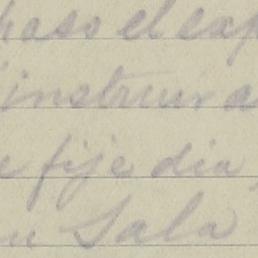 paso el exp
instruir a
e fije dia,
su Sala